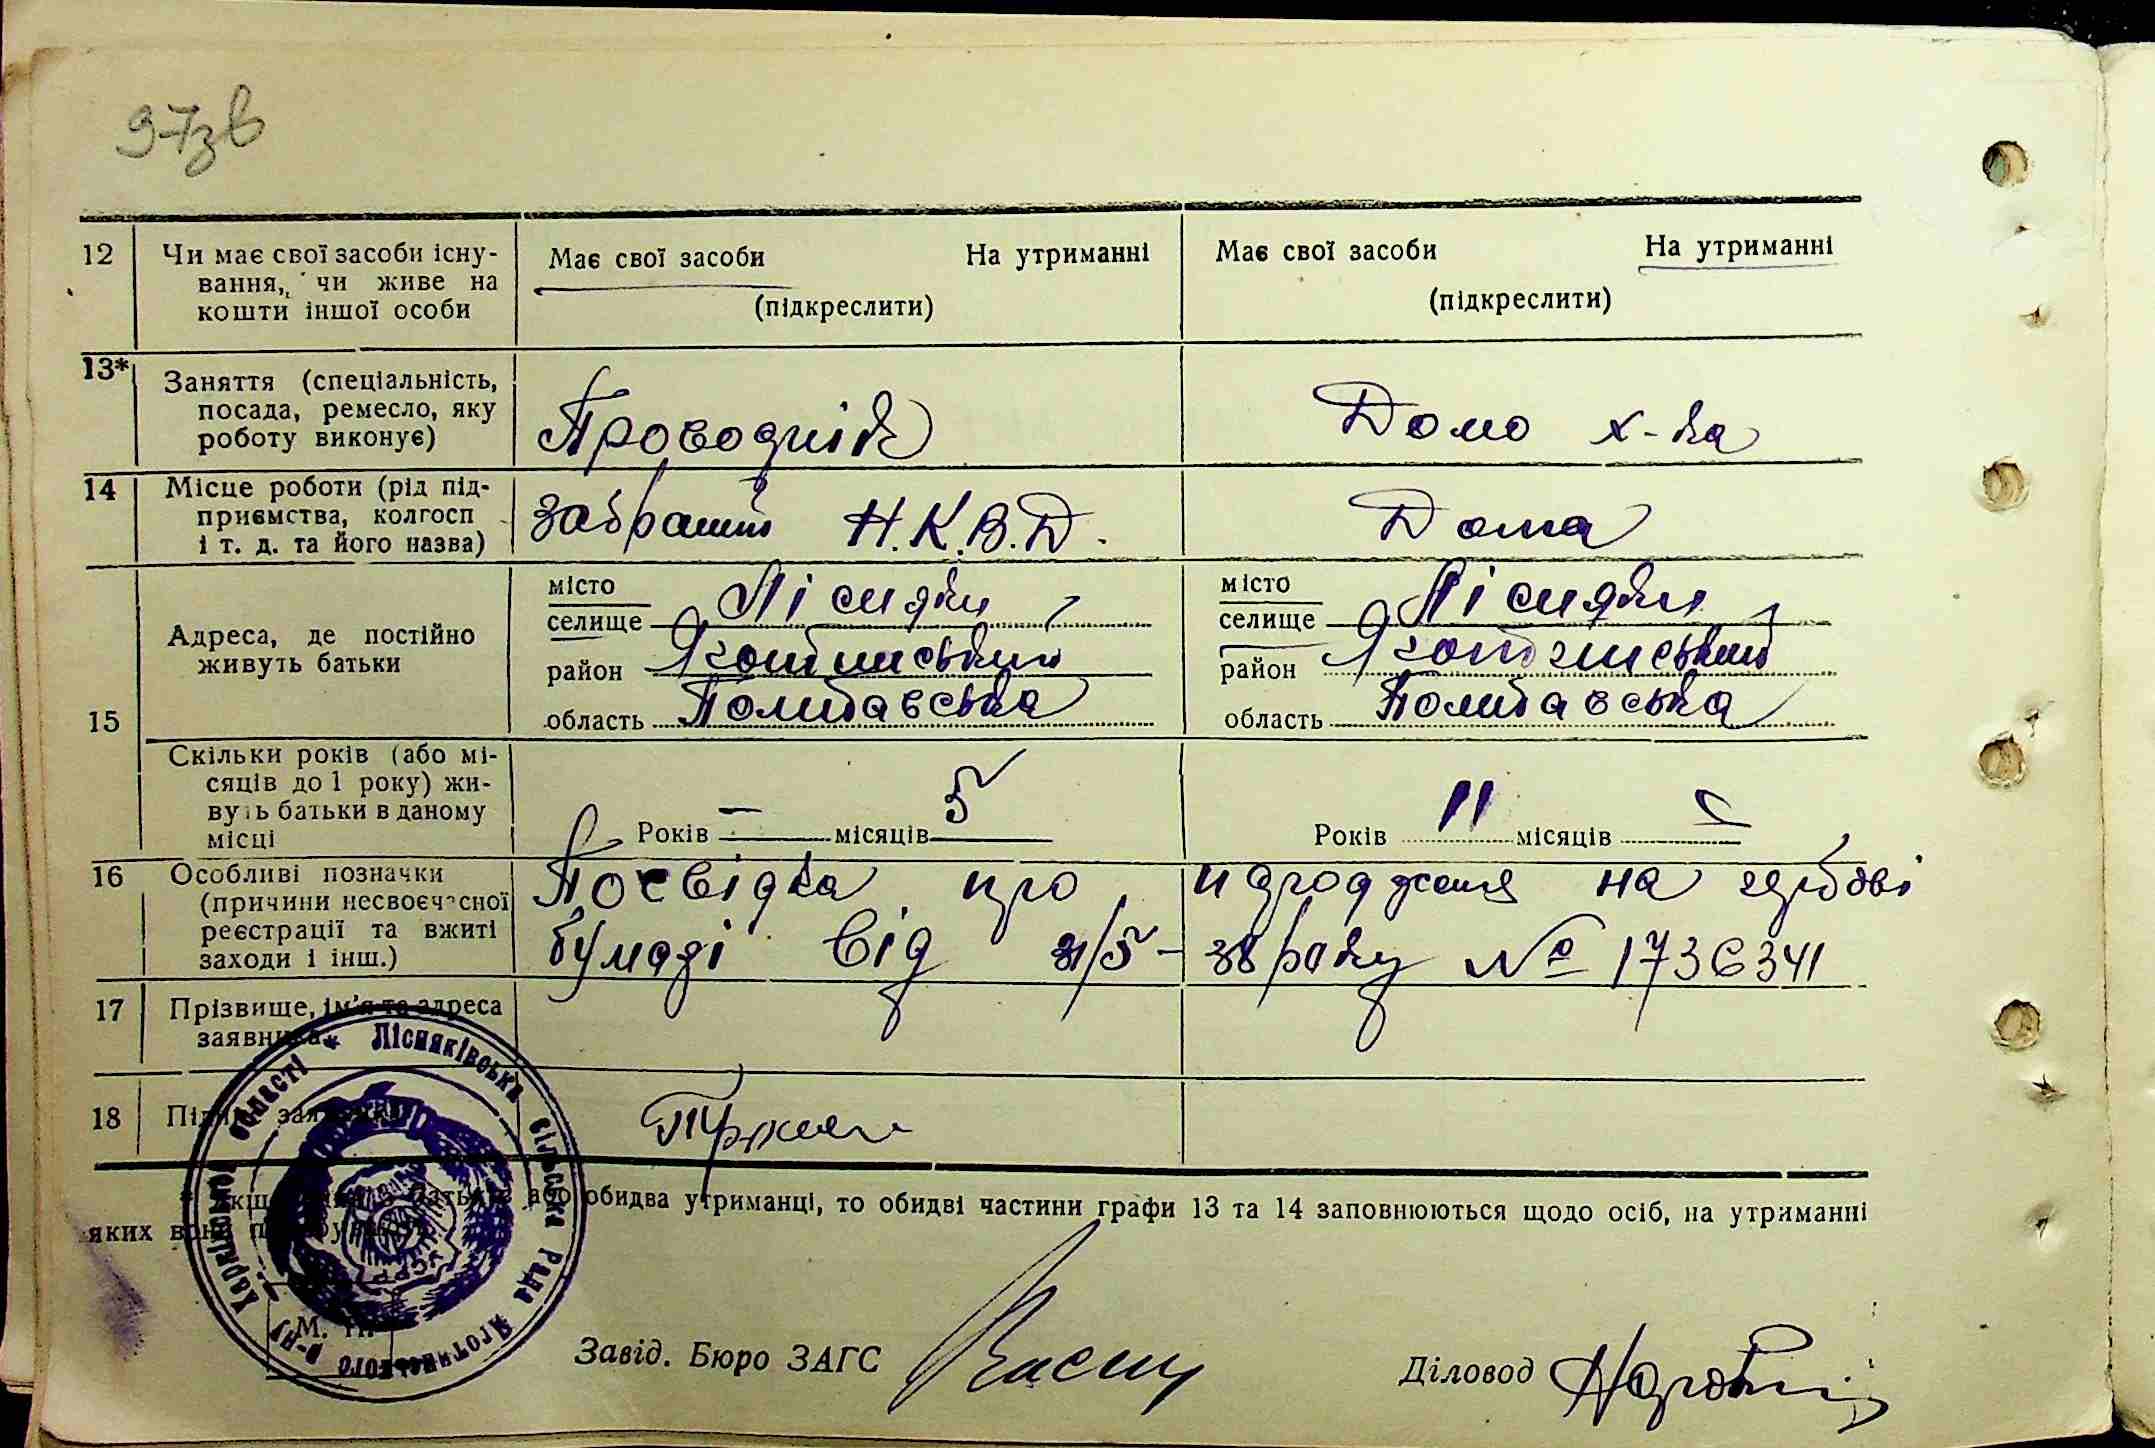 97зв
12 Чи має свої засоби існу- Має свої засоби На утриманні Має свої засоби На утриманні
вання, чи живе на
кошти іншої особи (підкреслити) (підкреслити)
13* Заняття (спеціальність,
посада, ремесло, яку Проводнік Домо х-ка
роботу виконує)
14 Місце роботи (рід під-
приємства, колгосп забраний Н.К.В.Д. Дома
і т. д. та його назва)
15 Адреса, де постійно
живуть батьки
місто Лісняки місто Лісняки
селище селище
район Яготинський район Яготинський
область Полтавська область Полтавська
Скільки років (або мі-
сяців до 1 року) жи-
вуть батьки в даному
місці Років – місяців 5 Років 11 місяців
16 Особливі позначки Посвідка про народження на гербові
(причини несвоєчасної
реєстрації та вжиті бумазі від 31/5-38 року № 1736341
заходи і інш.)
17 Прізвище, ім'я та адреса
заявника
18 Підпис заявника
* Якщо батьків або обидва утриманці, то обидві частини графи 13 та 14 заповнюються щодо осіб, на утриманні
яких вони перебувають.
Ліснякiвська сільська Рада Яготинського р-ну Харківської області *
УСРР
М. П.
Завід. Бюро ЗАГС Діловод